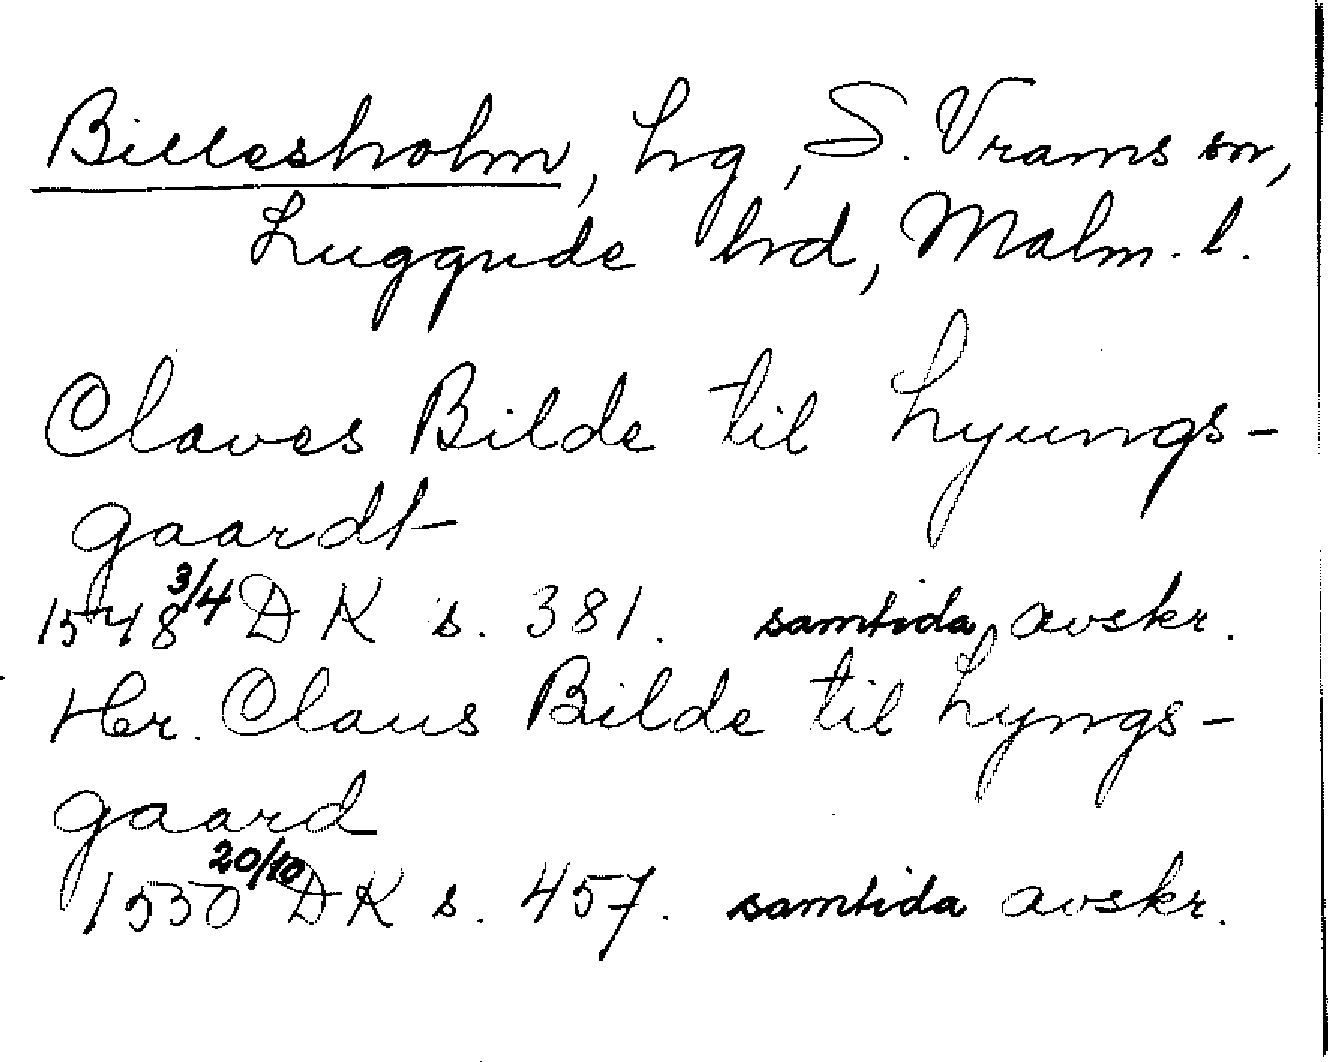 Billesholm, hg, S. Vrams sn,
Luggude hrd, Malm. l.
Claves Bilde til Lyungs-
gaardt
1548 3/4 DK s. 381. samtida avskr.
Her. Claus Bilde til Lyngs-
gaard
1550 20/10 DK s. 457. samtida avskr.